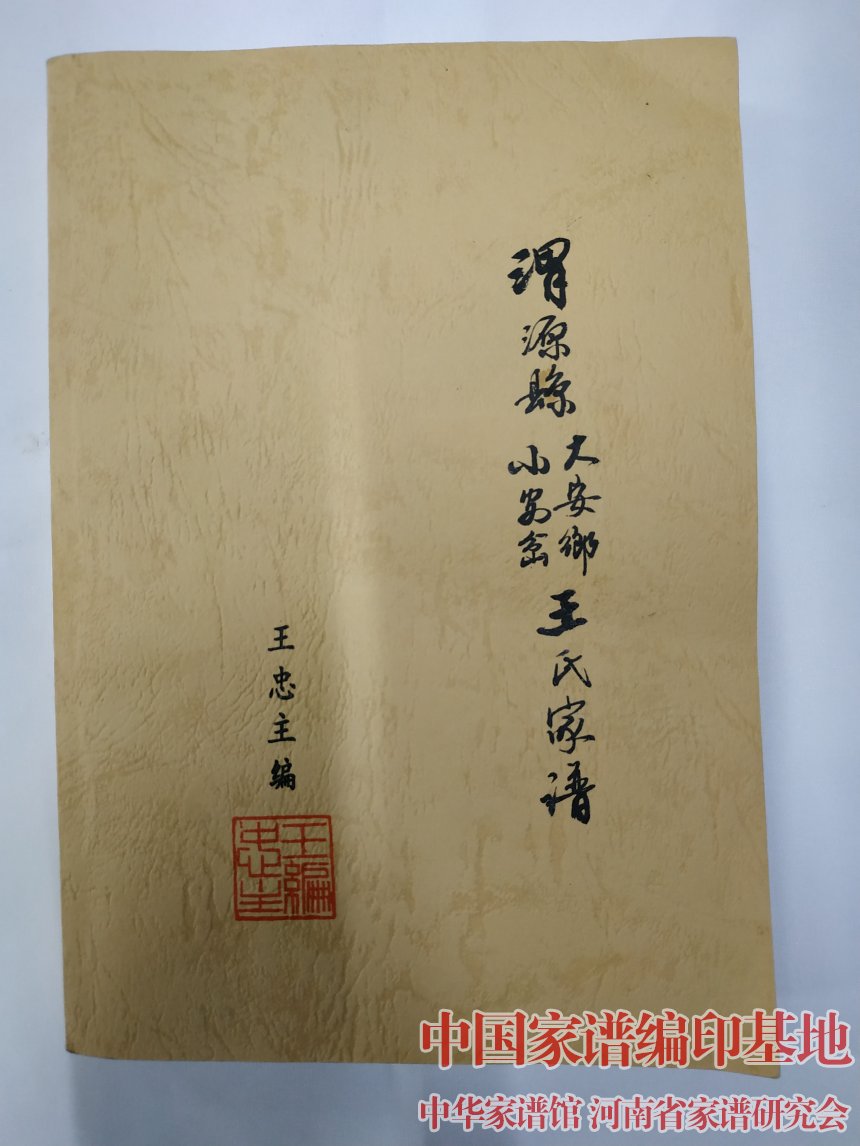 渭源縣
大安鄉
小安岔
王氏家谱
王忠主编
王编
忠主
中国家谱编印基地
中华家谱馆 河南省家谱研究会